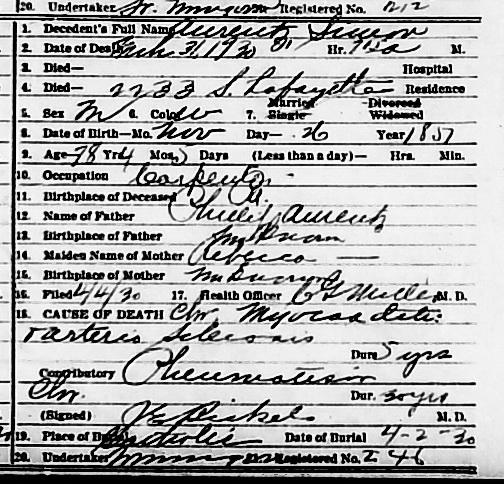 20. Undertaker Registered No. 212
1. Decedent's Full Name Laurentz Simon
2. Date of Death Mch. 31, 1930 Hr. M.
3. Died— Hospital
4. Died— 2233 S. Lafayette Residence
5. Sex M 6. Color W 7. Married Single Divorced Widowed
8. Date of Birth—Mo. Nov Day— 26 Year 1851
9. Age 78 Yrs 4 Mos. 5 Days (Less than a day)— Hrs. Min.
10. Occupation Carpenter
11. Birthplace of Deceased
12. Name of Father Philip Laurentz
13. Birthplace of Father Unknown
14. Maiden Name of Mother Rebecca —
15. Birthplace of Mother Unknown
16. Filed 4/4/30 17. Health Officer M. D.
18. CAUSE OF DEATH Chr. Myocarditis
+ arterio sclerosis
Dura 5 yrs
Contributory Rheumatism
Chr. Dur. 30 yrs
(Signed) M. D.
19. Place of Burial Catholic Date of Burial 4-2-30
20. Undertaker Registered No. 246